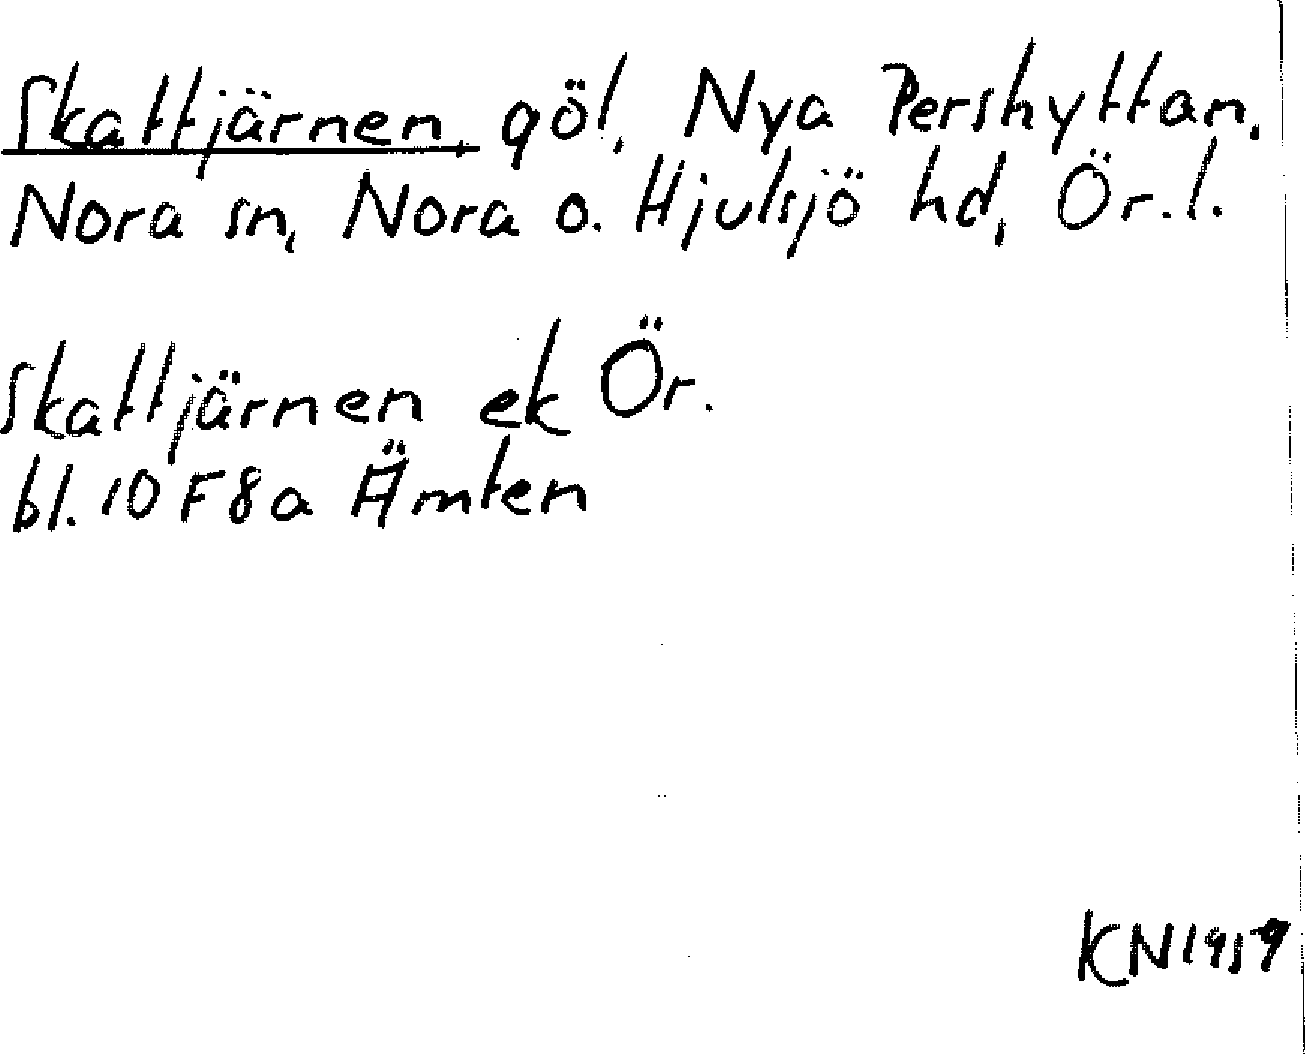 Skattjärnen, göl, Nya Pershyttan,
Nora sn, Nora o. Hjulsjö hd, Ör. l.
Skattjärnen ek Ör.
bl. 10 F 8 a Ämten
KN 1959